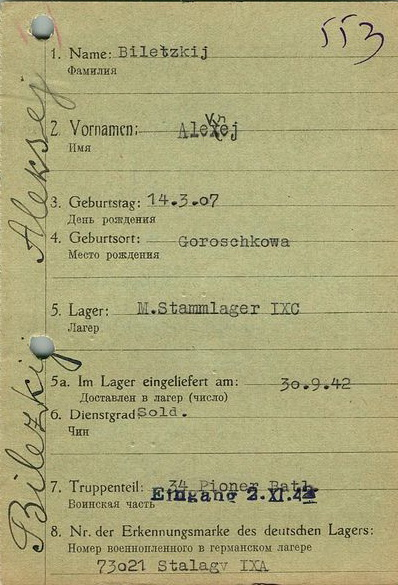 553
1. Name: Biletzkij
Фамилия
2. Vornamen: Alexej
Имя
3. Geburtstag: 14.3.07
День рождения
4. Geburtsort: Goroschkowa
Место рождения
5. Lager: M.Stammlager IXC
Лагер
5a. Im Lager eingeliefert am: 30.9.42
Доставлен в лагер (число)
6. Dienstgrad Sold.
Чин
7. Truppenteil: 34 Pioner Batl.
Eingang 2.XI.42
Воинская часть
8. Nr. der Erkennungsmarke des deutschen Lagers:
Номер военнопленного в германском лагере
73021 Stalagv IXA
Bilezkij Aleksej